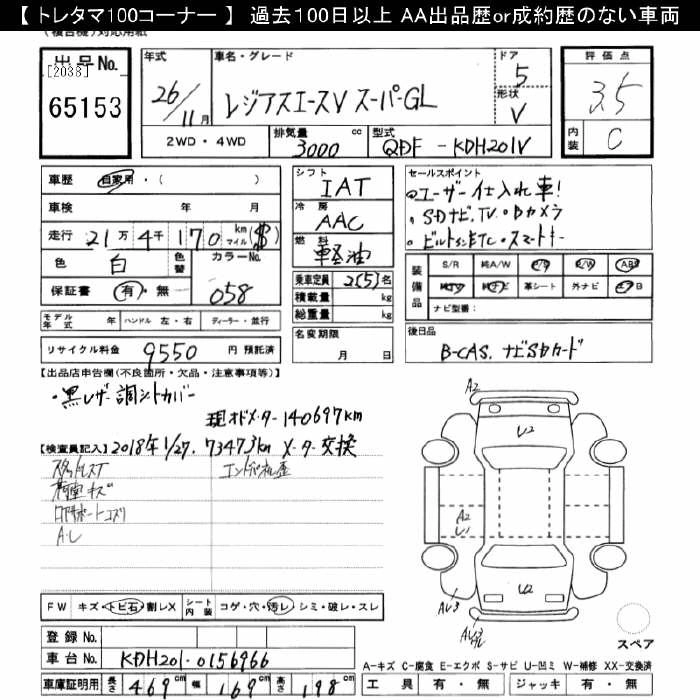 【 トレタマ100コーナー 】 過去100日以上 AA出品歴or成約歴のない車両
対応用紙
出品No.
[2038]
65153
年式
26/11月
車名・グレード
レジアスエースV スーパーGL
ドア
5
形状
V
評価点
3.5
内装
C
2WD・4WD
排気量
3000 cc
型式
QDF-KDH201V
車歴 自家用・( )
車検 年 月
走行 21万4千170 km マイル ($)
色 白 色替 カラーNo. 058
保証書 有・無
モデル年式 年 ハンドル 左・右 ディーラー・並行
リサイクル料金 9550 円 預託済
シフト
IAT
冷房
AAC
燃料
軽油
乗車定員 2(5)名
積載量 kg
総重量 kg
名変期限
月 日
セールスポイント
ユーザー仕入れ車!
SDナビ.TV.Bカメラ
ビルトインETC・スマートキー
装備品
S/R 純A/W P/S P/W ABS
純TV 純ナビ 革シート 外ナビ B
ナビ型番:
後日品
B-CAS. ナビSDカード
【出品店申告欄(不良箇所・欠品・注意事項等)】
・黒レザー調シートカバー
現オドメーター140697km
【検査員記入】 2018年1/27. 73473km メーター交換
スタッドレスT
荷室キズ
ロアサポートコスリ
A・L
FW キズ・トビ石・割レX シート内装 コゲ・穴・汚レ・シミ・破レ・スレ
登録No.
車台No. KDH201-0156966
車庫証明用 長さ 469cm 幅 169cm 高さ 198cm
A2
U2
A2
U1
U2
AU3
スペア
A-キズ C-腐食 E-エクボ S-サビ U-凹ミ W-補修 XX-交換済
工具 有・無 ジャッキ 有・無